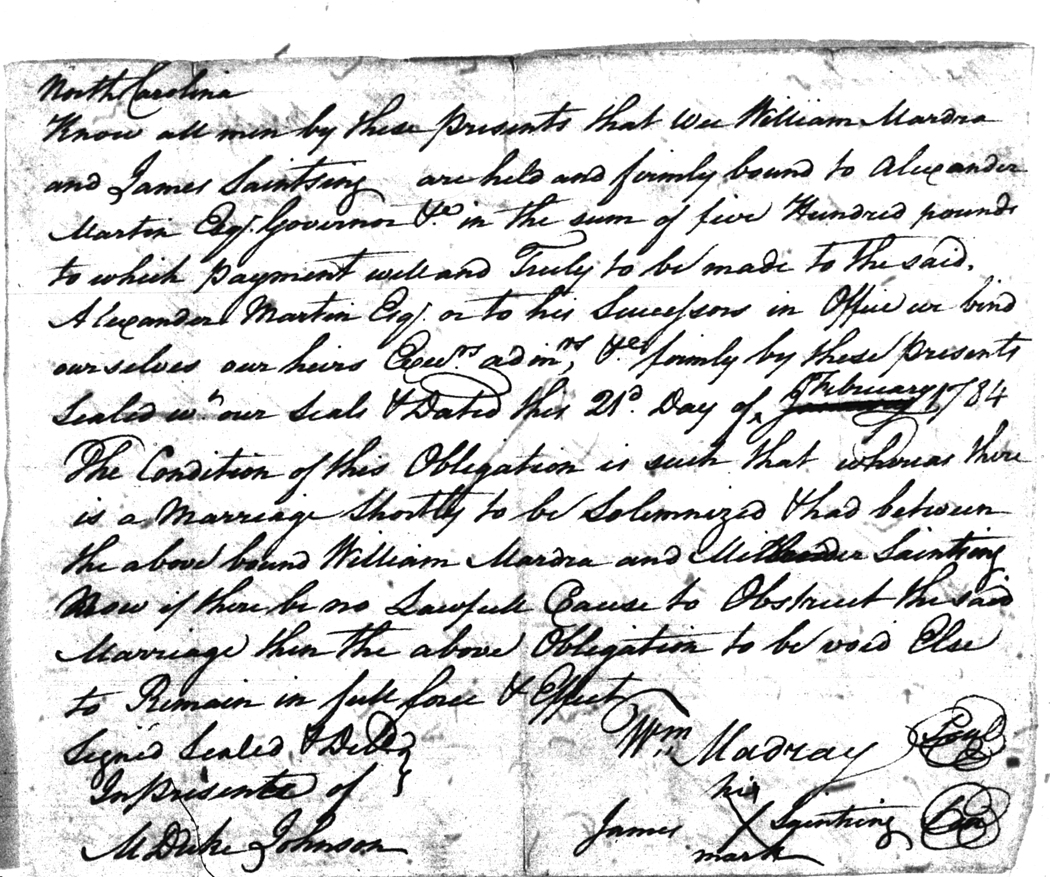 North Carolina
Know all men by these presents that wee William Mardra
and James Saintsing are held and firmly bound to Alexander
Martin Esqr. Governor &c in the sum of five Hundred pounds
to which payment well and Truly to be made to the said.
Alexander Martin Esqr. or to his Successors in Office we bind
ourselves our heirs Exers. admrs, &c firmly by these presents
Sealed wth our Seals & Dated this 21d. Day of February 1784
The Condition of this Obligation is such that whereas there
is a Marriage Shortly to be Solemnized & had between
the above bound William Mardra and Saintsing
Now if there be no Lawfull Cause to Obstruct the said
Marriage then the above Obligation to be void Else
to Remain in full force & Effect
Signed Sealed & Delld
In presents of
Wm Madray Seal
his
James X Saintsing Seal
mark
M Duke Johnson